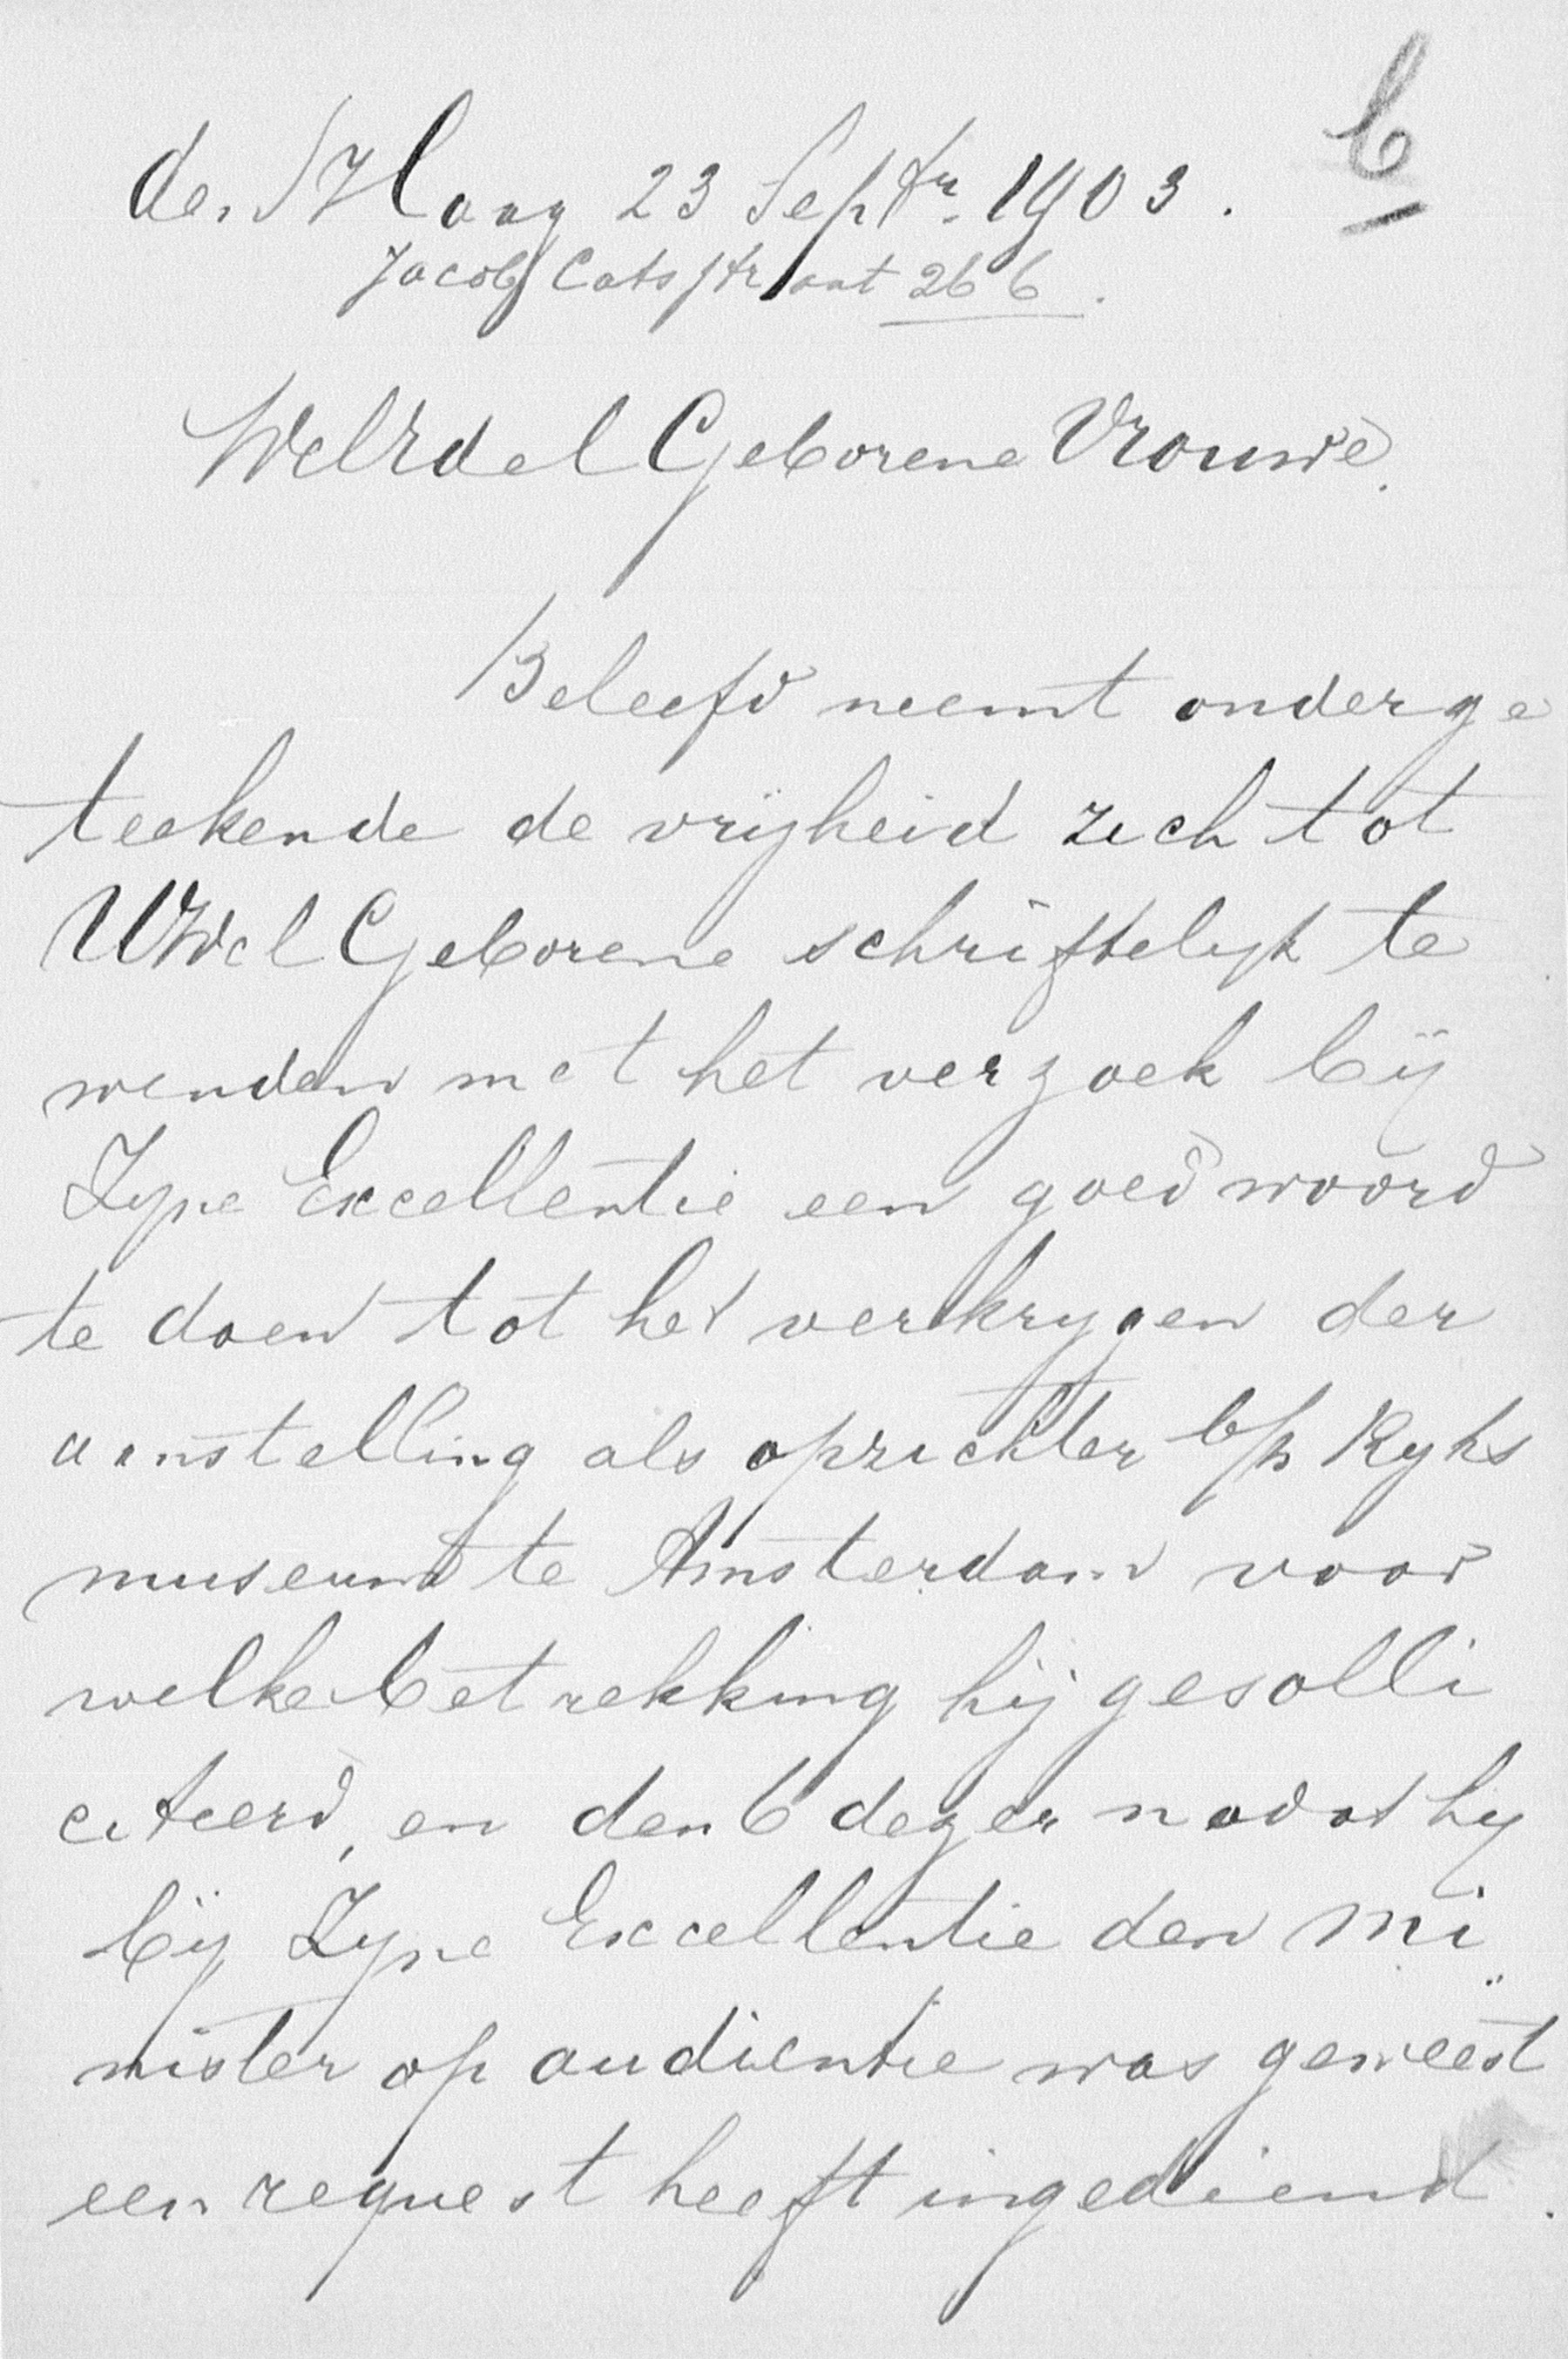 C
den Haag 23 Septr. 1903.
Jacob Catsstraat 266.
WelEdel Geborene Vrouwe.
Beleefd neemt onderge
teekende de vrijheid zich tot
UWel Geborene schriftelyk te
wenden met het verzoek bij
Zyne Excellentie een goed woord
te doen tot het verkrygen der
aanstelling als opzichter b/h Ryks
museum te Amsterdam voor
welke betrekking hij gesolli
citeerd, en den 6 dezer nadat hy
bij Zyne Excellentie den Mi
nister op audientie was geweest
een request heeft ingediend.